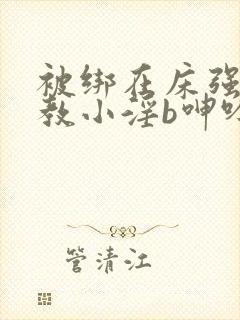 被绑在床强
教小淫b呻吟
管清江